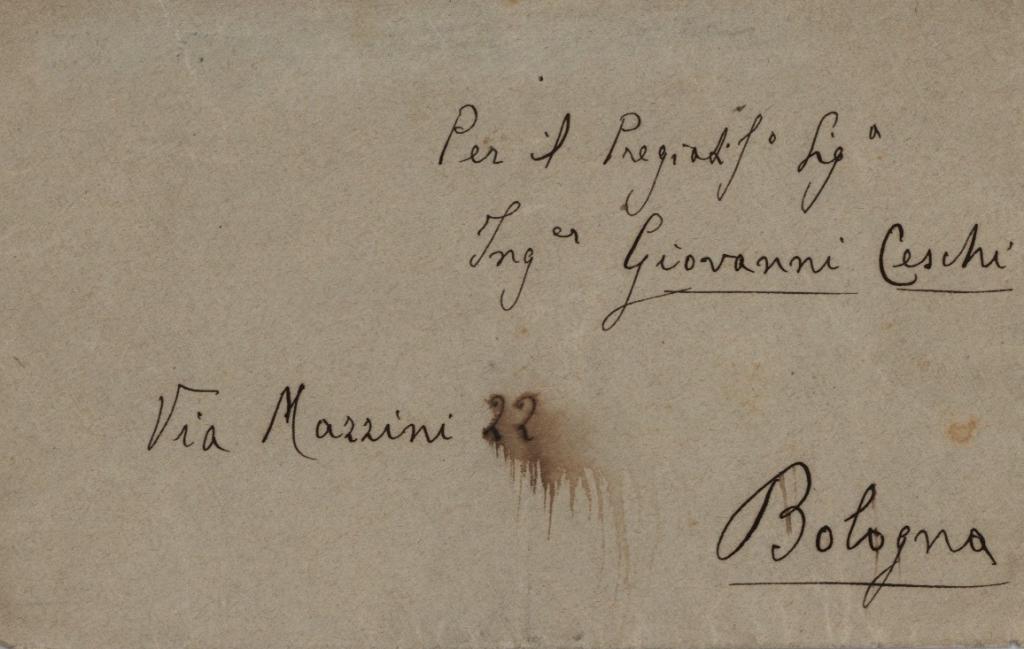 Per il Pregiatis.º Sig.ª
Ing.er Giovanni Ceschi
Via Mazzini 22
Bologna